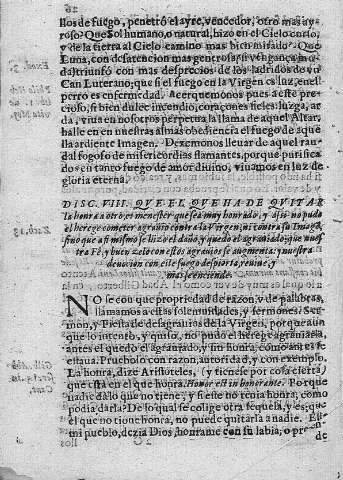 llos de fuego, penetrò el ayre, vencedor, otro mas ayroso? Que Sol humano, o natural, hizo en el Cielo curso,
y de la tierra al Cielo camino mas bien mirado? Que
Luna, con desatencion mas generosa, si vengança, mas
da, triunfò con mas desprecios de los ladridos de vn
Can Luterano, que si el fuego en la Virgen es luz, en el
perro es enfermedad. Acerquemonos pues a este precroso, si bien dulce incendio, coraçones fieles, luzga, arda, viua en nosotros perpetua la llama de aquel Altar,
halle en en nuestras almas obediencia el fuego de aquella ardiente Imagen. Dexemonos lleuar de aquel raudal fogoso de misericordias flamantes, porque purificados en tanto fuego de amor diuino, viuamos en luz de
gloria eterna.
DISC. VIII. QVE EL QVE HA DE QVITAR
la honra a otro, es menester que sea muy honrado, y assi no pudo
el herege cometer agrauio contra la Virgen, ni contra su Imagẽ,
sino que a si mismo se hizo el daño, y quedo el agrauiado; que nuestra Fè, y buen zelo con estos agrauios se augmenta: y nuestra
deuocion con este fuego despierta, reuiue, y
mas se enciende.
NO se con que propriedad de razon, y de palabras,
llamamos a estas solemnidades, y sermones: Sermon, y Fiesta de desagrauios de la Virgen, porque aunque lo intentò, y quiso, no pudo el herege agrauiarla,
antes el quedò el agrauiado, y sin honra, como antes se
estaua. Prueuolo con razon, autoridad, y con exemplo.
La honra, dize Aristoteles, (y tienese por cosa cierta)
que està en el que honra. Honor est in honorante. Porque
nadie dà lo que no tiene, y si este no tenia honra, como
podia darla? De lo qual se colige otra sequela, y es, que
el que no tiene honra, no puede quitarla a nadie. El
mi pueblo, dezia Dios, honrame con su labia, o pre-
de